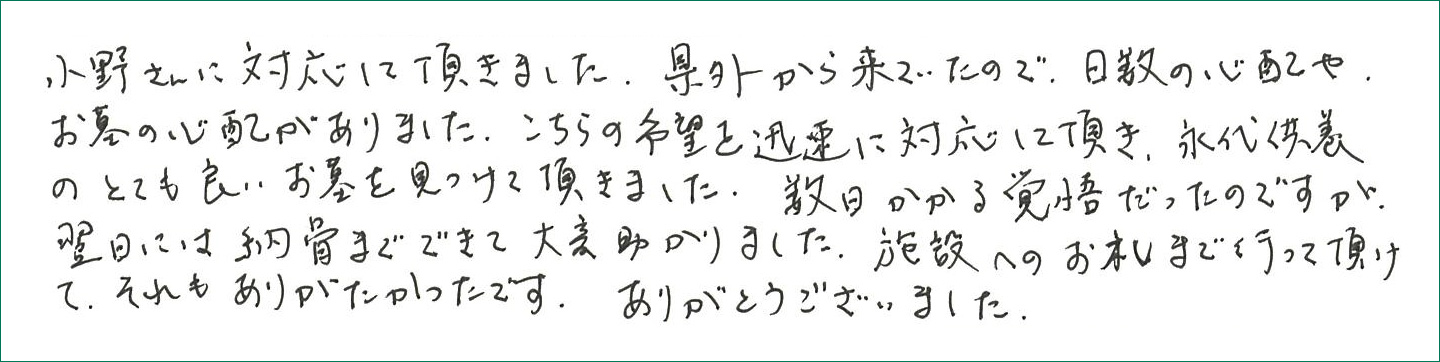 小野さんに対応して頂きました. 県外から来ていたので. 日数の心配や.
お墓の心配がありました. こちらの希望を迅速に対応して頂き、永代供養
のとても良いお墓を見つけて頂きました. 数日かかる覚悟だったのですが.
翌日には納骨までできて大変助かりました. 施設へのお礼まで行って頂け
て. それもありがたかったです. ありがとうございました.